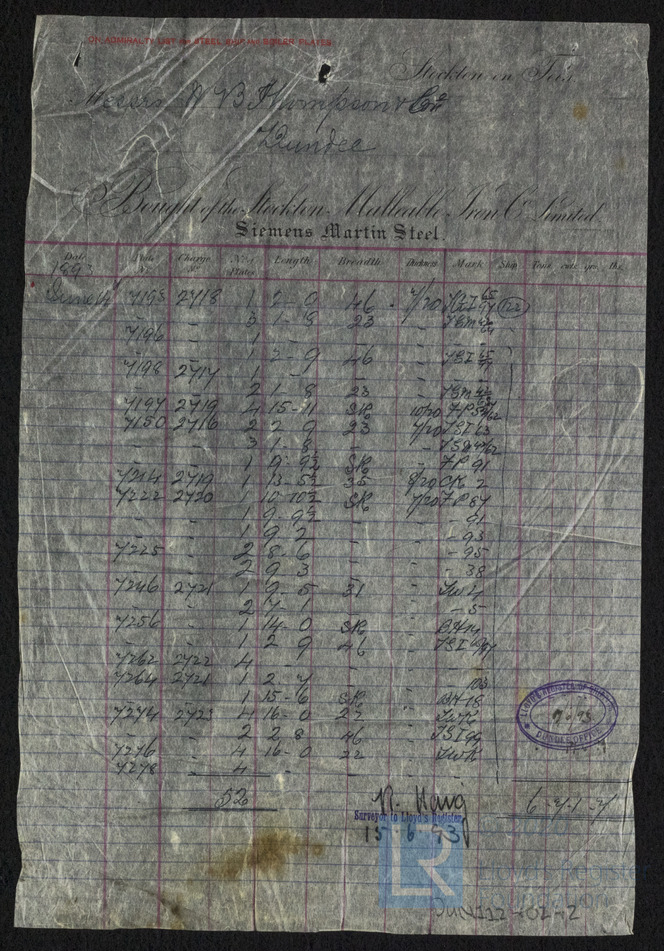 ON ADMIRALTY LIST FOR STEEL SHIP AND BOILER PLATES
Stockton on Tees
Messrs W B Thompson & Co
Dundee
Bought of the Stockton Malleable Iron Co Limited
Siemens Martin Steel.
Date Plate No. Charge No. No. of Plates Length Breadth Thickness Mark Ship Tons cwts qrs lbs
1893
June 14 7193 2718 1 2-0 46 7/20
- - 3 1-8 23
7196 - 1 -
- - 1 2-9 46
7198 2717 1 -
- - 2 1-8 23
7197 2719 4 15-11 SK 10/20
7150 2716 2 2-9 23 7/20
- - 3 1-8 -
- - 1 9-9½ SK - FP 91
7214 2719 1 13-5½ 35 8/20 CK 2
7222 2720 1 10-10½ SK 7/20 FP 87
- - 1 9-9½ - - - 91
- - 1 9-2 - - - 93
7225 - 2 8-6 - - - 95
- - 2 9-3 - - - 38
7246 2721 1 9-5 31 -
- - 2 7-1 - - - 5
7256 - 1 14-0 SK -
- - 1 2-9 46 -
7262 2722 4 - -
7264 2721 1 2-7 - - 103
- - 1 15-6 SK - BH 18
7274 2723 4 16-0 22 -
- - 2 2-8 46 -
7276 - 4 16-0 22 -
7278 - 4 - - -
52
6-7-1-7
LLOYD'S REGISTER OF SHIPPING
DUNDEE OFFICE
Surveyor to Lloyd's Register
15-6-93
LR
DUN112-02-2